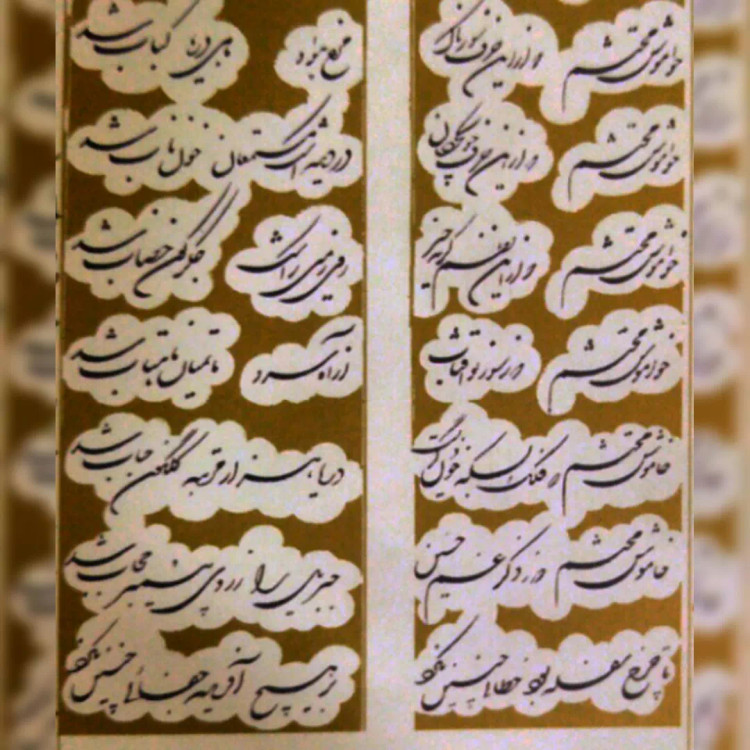 خاموش محتشم که ازین حرف سوزناک مرغ هوا و ماهی دریا کباب شد
خاموش محتشم که ازین حرف خونچکان در دیده اشک مستمعان خون ناب شد
خاموش محتشم که ازین نظم گریه خیز روی زمین باشک جگرگون خضاب شد
خاموش محتشم که بسوز تو آفتاب از آه سرد ماتمیان ماهتاب شد
خاموش محتشم که فلک بسکه خون گریست دریا هزار مرتبه گلگون حباب شد
خاموش محتشم که ز ذکر غم حسین جبریل را ز روی پیمبر حجاب شد
تا چرخ سفله بود خطائی چنین نکرد بر هیچ آفریده جفائی چنین نکرد